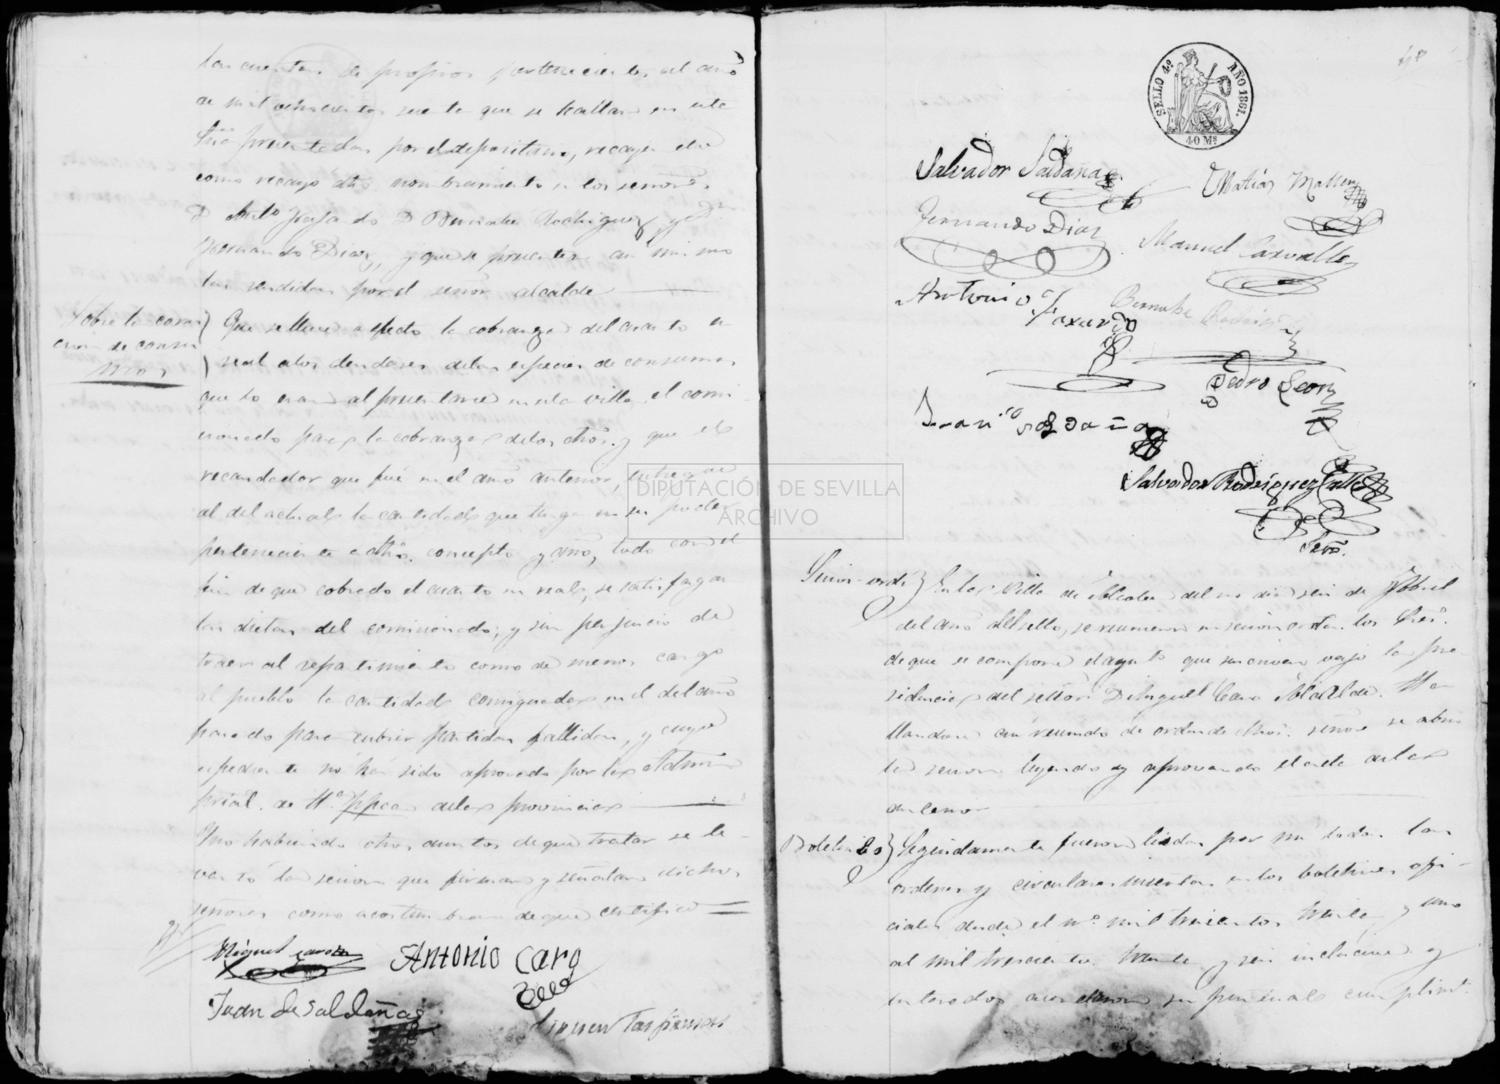 las cuentas de propios pertenecientes al año
de mil ochocientos que se hallan en esta
presentadas por el depositario, recayera
como recayo dho nombramiento en los señores
D Antº Fajardo D Bernabe Rodriguez y D.
Fernando Diaz, y que se presenten asi mismo
las rendidas por el señor alcalde
Sobre la
de consu
mos
Que se lleve a efecto la cobranza del cuarto en
real a los vendedores de las especies de consumos
que lo eran al presentarse en esta villa el comi-
sionado para la cobranza de los dhos. y que el
recaudador que fué en el año anterior, entregue
al del actual la cantidad que tenga en su poder
perteneciente a dho. concepto y año, todo con el
fin de que cobrado el cuarto en real, se satisfagan
las dietas del comisionado, y sin perjuicio de
traer al repartimiento como de menos cargo
al pueblo la cantidad consignada en el del año
pasado para cubrir partidas fallidas, y cuyo
espediente no ha sido aprovado por la Admon
pral. de Hª Ppca de la provincia
No habiendo otros asuntos de que tratar se le-
vantó la sesion que firman y señalan dichos
señores como acostumbran de que certifico
Miguel Caro
Antonio Caro
Juan de Saldaña
SELLO 4º AÑO 1867.
40 Ms
Salvador Saldaña
Matias
Fernando Diaz
Manuel Carvalle
Antonio Faxardo
Bernabe Rodrig
Pedro Leon
Franco Saldaña
Salvador Rodriguez Calle
Srio.
Sesion ordª
En la Villa de Alcolea del rio dia seis de Abril
del año del sello, se reunieron en sesion ordª los Sres.
de que se compone el aynto que suscriven vajo la pre-
sidencia del señor D Miguel Caro Alcalde. Ha-
llandose asi reunido de orden de dho. señor se abrio
la sesion leyendo y aprovando el acta de la
anterior
Boletines
Seguidamente fueron leidas por mi todas las
ordenes y circulares insertas en los boletines ofi-
ciales desde el nº. mil trescientos treinta y uno
al mil trescientos treinta y seis inclusive y
enterados acordaron su puntual cumplimto.
DIPUTACIÓN DE SEVILLA
ARCHIVO